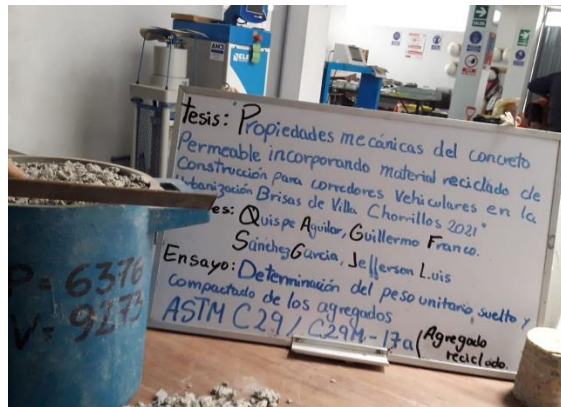 Tesis: "Propiedades mecánicas del concreto
Permeable incorporando material reciclado de
Construcción para corredores Vehiculares en la
Urbanización Brisas de Villa Chorrillos 2021"
es: Quispe Aguilar, Guillermo Franco.
Sánchez Garcia, Jefferson Luis
Ensayo: Determinación del peso unitario suelto y
compactado de los agregados
ASTM C29/C29M-17a (Agregado
reciclado.
P = 6376
V = 9273
ELE